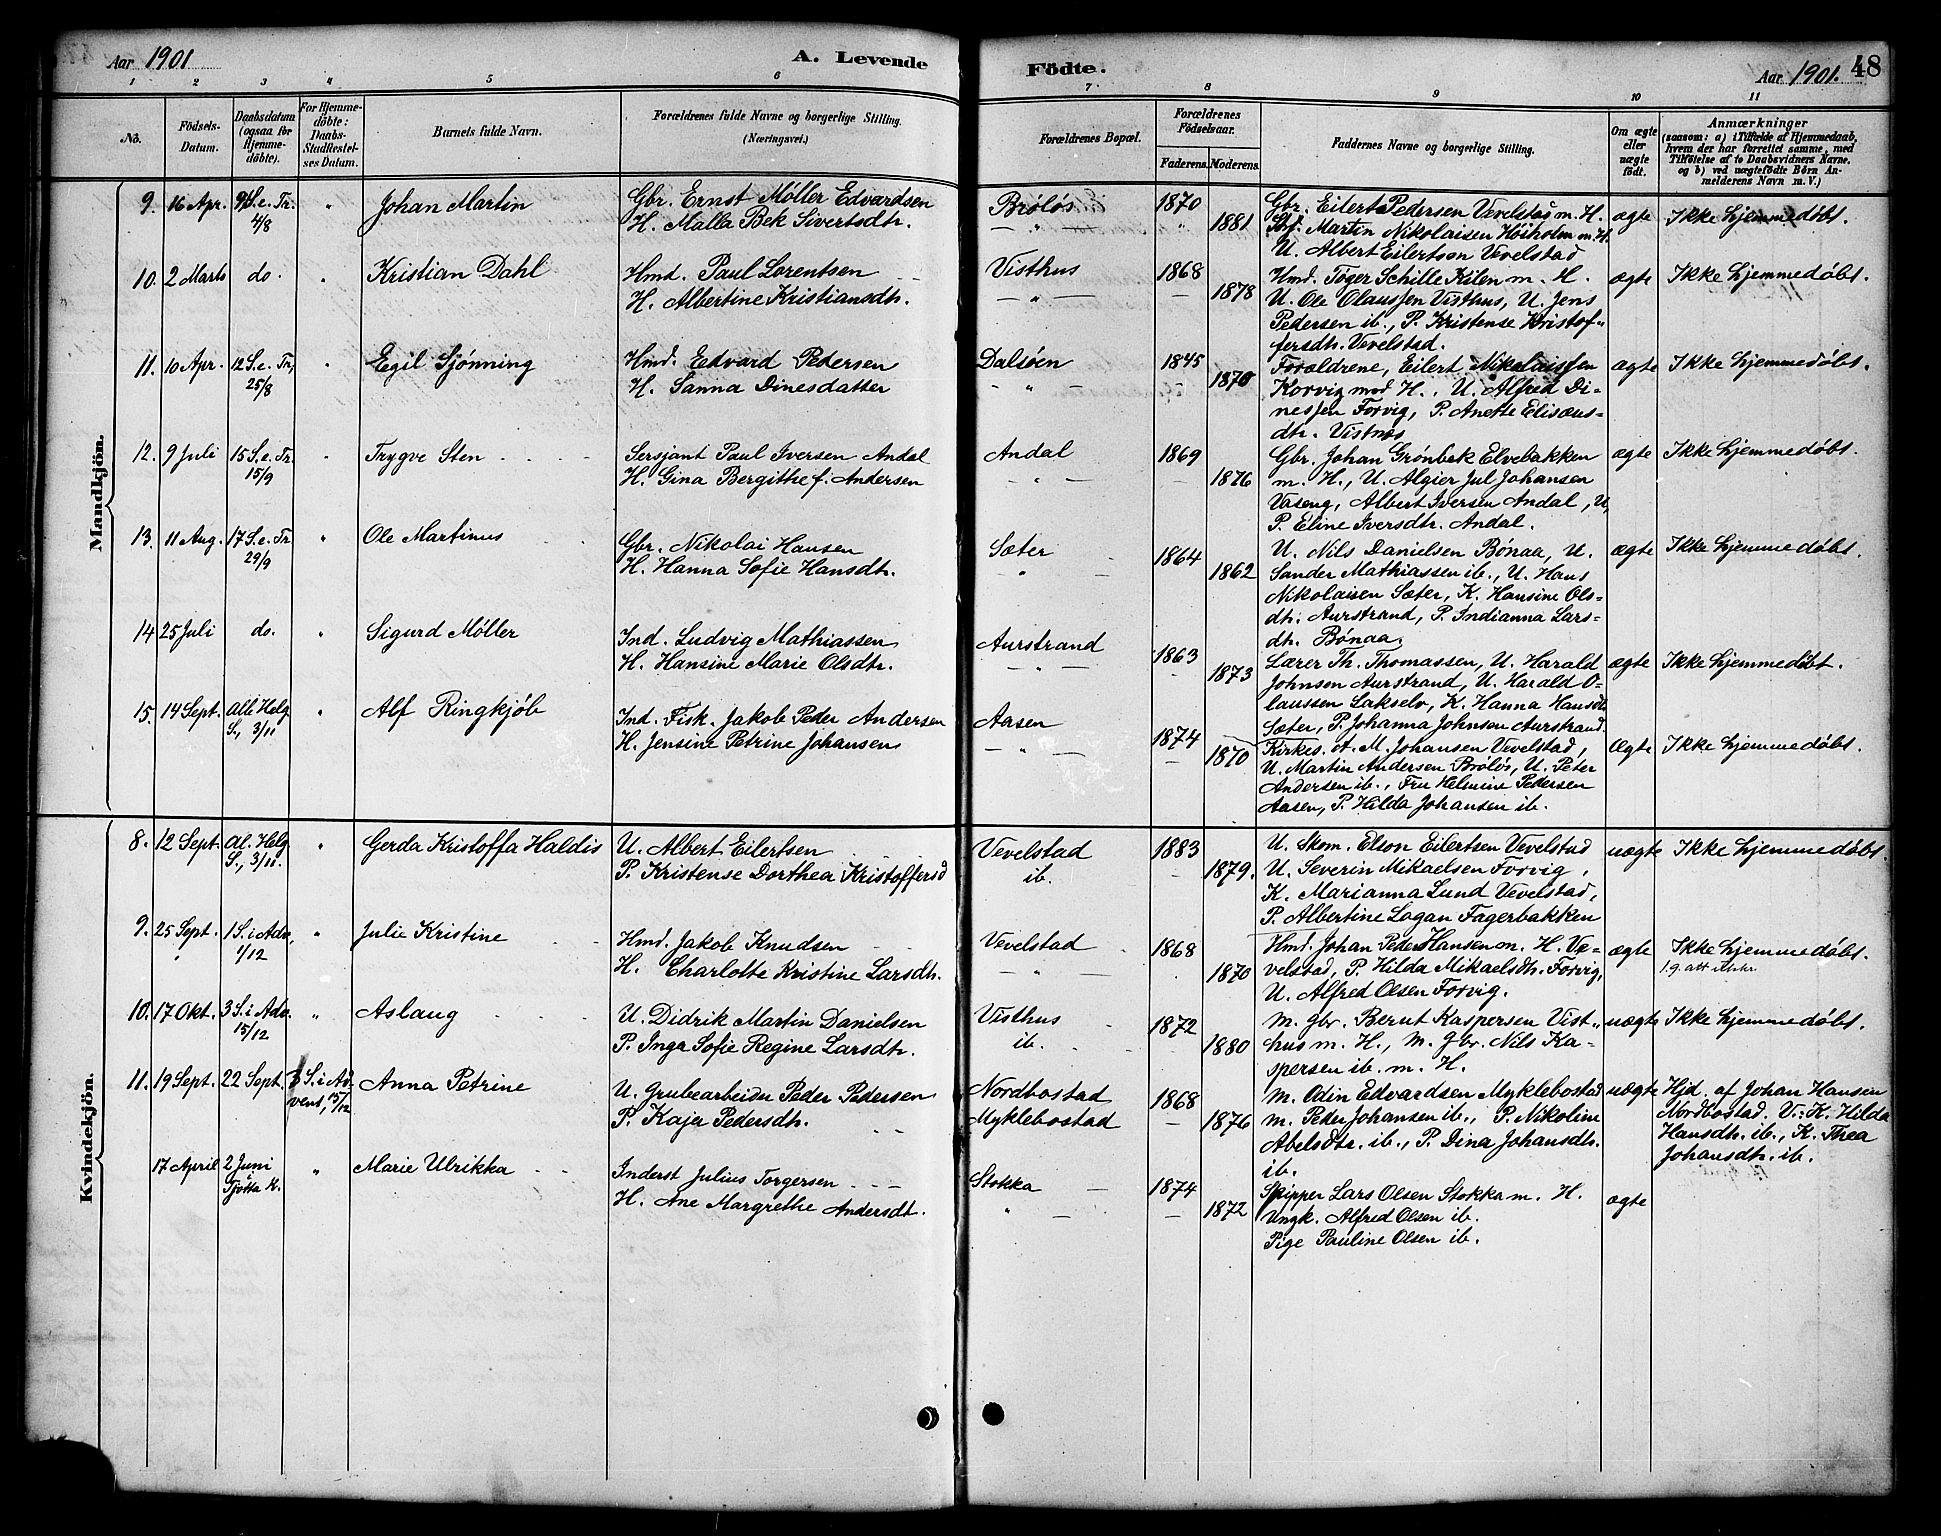 Aar 1901
A. Levende
1 2 3 4 5 6
No.
Födsels-Datum.
Daabsdatum (ogsaa for Hjemme-døbte).
For Hjemme-døbte: Daabs-Stadfæstel-ses Datum.
Barnets fulde Navn.
Forældrenes fulde Navne og borgerlige Stilling.
(Næringsvei.)
Mandkjön.
9. 16 Apr. 9 S. e. Tr. 4/8 " Johan Martin
Gbr. Ernst Møller Edvardsen
H. Malla Bek Sivertsdtr.
10. 2 Marts do. " Kristian Dahl
Hmd. Paul Lorentsen
H. Albertine Kristiansdtr.
11. 10 Apr. 12 S. e. Tr. 25/8 " Egil Sjønning
Hmd. Edvard Pedersen
H. Sanna Dinesdatter
12. 9 Juli 15 S. e. Tr. 15/9 " Trygve Sten
Sersjant Paul Iversen Andal
H. Gina Bergithe f. Andersen
13. 11 Aug. 17 S. e. Tr. 29/9 " Ole Martinus
Gbr. Nikolai Hansen
H. Hanna Sofie Hansdtr.
14 25 Juli do. " Sigurd Møller
Ind. Ludvig Mathiassen
H. Hansine Marie Olsdtr.
15. 14 Sept. Alle Helg. S., 3/11 " Alf Ringkjøb
Ind. Fisk. Jakob Peder Andersen
H. Jensine Petrine Johansen
Kvindekjön.
8. 12 Sept. Al. Helg. S., 3/11. " Gerda Kristoffa Haldis
U. Albert Eilertsen
P. Kristense Dorthea Kristoffersd
9. 25 Sept. 1 S. i Adv. 1/12 " Julie Kristine
Hmd. Jakob Knudsen
H. Charlotte Kristine Larsdtr.
10. 17 Okt. 3 S. i Adv. 15/12 " Aslaug
U. Didrik Martin Danielsen
P. Inga Sofie Regine Larsdtr.
11. 19 Sept. 22 Sept. 3 S. i Advent, 15/12 Anna Petrine
U. Grubearbeider Peder Pedersen
P. Kaja Pedersdtr.
17 April 2 Juni i Tjøtta K. " Marie Ulrikka
Inderst Julius Torgersen
H. Ane Margrethe Andersdt.
Födte.
Aar 1901. 48
7. 8 9 10 11
Forældrenes Bopæl.
Forældrenes Födselsaar.
Faderens. Moderens.
Faddernes Navne og borgerlige Stilling.
Om ægte eller uægte født.
Anmærkninger
(saasom: a) i Tilfælde af Hjemmedaab,
hvem der har forrettet samme, med
Tilføielse af to Daabsvidners Navne.
og b) ved uægtefødte Børn An-
melderens Navn m. V.)
Brøløs 1870 1881
Gbr. Eilert Pedersen Vevelstad m. H.
Martin Nikolaisen Høiholm m. H.
U. Albert Eilertsen Vevelstad
ægte Ikke hjemmedøbt.
Visthus 1868 1878
Hmd. Tøger Schille Kilen m. H.
U. Ole Olaussen Visthus, U. Jens
Pedersen ib., P. Kristense Kristof-
fersdtr. Vevelstad.
ægte Ikke hjemmedøbt.
Dalsøen 1845 1870
Forældrene, Eilert Nikolaissen
Korvig med H., U. Alfred Di-
nessen Forvig, P. Anette Elisæus-
dtr. Vistnes
ægte Ikke hjemmedøbt.
Andal 1869 1876
Gbr. Johan Grønbek Elvebakken
m. H., U. Algier Jul Johansen
Vaseng, Albert Iversen Andal, U,
P. Eline Iversdtr. Andal.
ægte Ikke hjemmedøbt.
Sæter 1864 1862
U. Nils Danielsen Bønaa, U.
Sander Mathiassen ib., U. Hans
Nikolaisen Sæter, K. Hansine Ols-
dtr. Aurstrand, P. Indianna Lars-
dtr. Bønaa.
ægte Ikke hjemmedøbt.
Aurstrand 1863 1873
Lærer Th. Thomassen, U. Harald
Johnsen Aurstrand, U. Harald O-
laussen Lakselv, K. Hanna Hansdt.
Sæter, P. Johanna Johnsen Aurstrand.
ægte Ikke hjemmedøbt.
Aasen 1874 1870
Kirkes. A. M. Johansen Vevelstad,
U. Martin Andersen Brøløs, U. Peter
Andersen ib., Fru Helmine Pedersen
Aasen, P. Hilda Johansen ib.
Ægte Ikke hjemmedøbt.
Vevelstad ib. 1883 1879.
U. Skom. Elson Eilertsen Vevelstad
U. Severin Mikaelsen Forvig,
K. Marianna Lund Vevelstad,
P. Albertine Logan Fagerbakken
uægte Ikke hjemmedøbt.
Vevelstad 1868 1870
Hmd. Johan Peder Hansen m. H. Ve-
velstad, P. Hilda Mikaelsdtr. Forvig,
U. Alfred Olsen Forvig.
ægte Ikke hjemmedøbt.
Visthus ib. 1872 1880
M. Gbr. Bernt Kaspersen Vist-
hus m. H., M. Gbr. Nils Ka-
spersen ib. m. H.
uægte Ikke hjemmedøbt.
Nordbostad
Myklebostad 1868 1876
M. Odin Edvardsen Myklebostad
m. Peder Johansen ib., P. Nikoline
Abelsdtr. ib., P. Dina Johansdtr.
ib.
uægte Hjd. af Johan Hansen
Nordbostad. V.: K. Hilda
Hansdtr. ib., K. Thea
Johansdtr. ib.
Stokka 1874 1872
Skipper Lars Olsen Stokka m. H.
Ungk. Alfred Olsen ib.
Pige Pauline Olsen ib.
ægte